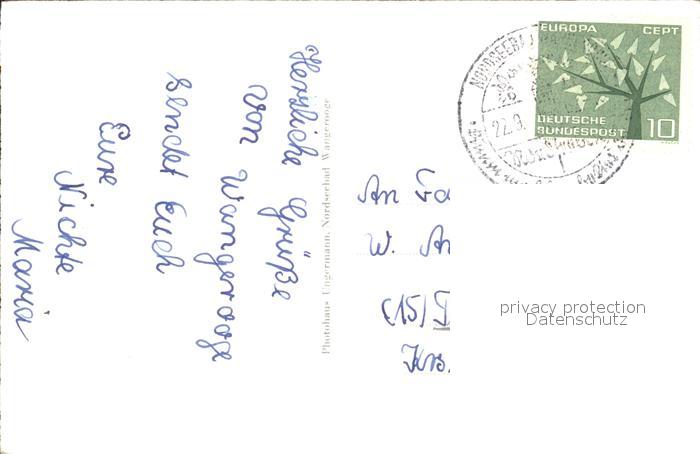 Herzliche Grüße
von Wangerooge
sendet Euch
Eure
Nichte
Maria
Photohaus Ungermann, Nordseebad Wangerooge
An Fa
W. An
(15)
Krs.
EUROPA CEPT
DEUTSCHE
BUNDESPOST 10
22.9.
privacy protection
Datenschutz